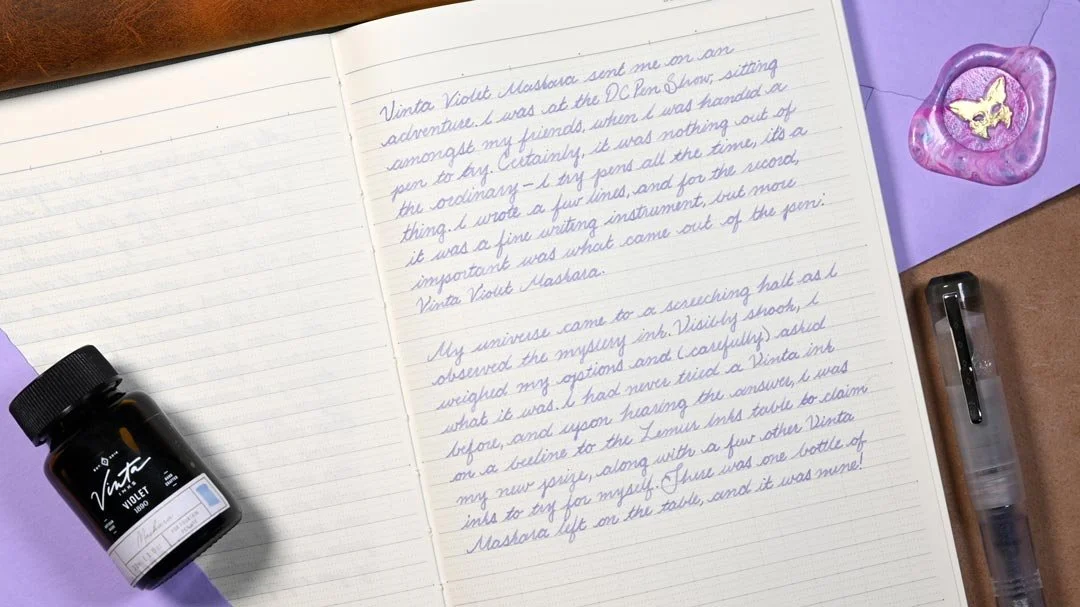 Vinta Violet Maskara sent me on an
adventure. I was at the DC Pen Show, sitting
amongst my friends, when I was handed a
pen to try. Certainly, it was nothing out of
the ordinary – I try pens all the time, it's a
thing. I wrote a few lines, and for the record,
it was a fine writing instrument, but more
important was what came out of the pen:
Vinta Violet Maskara.
My universe came to a screeching halt as I
observed the mystery ink. Visibly shook, I
weighed my options and (carefully) asked
what it was. I had never tried a Vinta ink
before, and upon hearing the answer, I was
on a beeline to the Lemur Inks table to claim
my new prize, along with a few other Vinta
inks to try for myself. There was one bottle of
Maskara left on the table, and it was mine!
Vinta
INKS
VIOLET
1890
Maskara